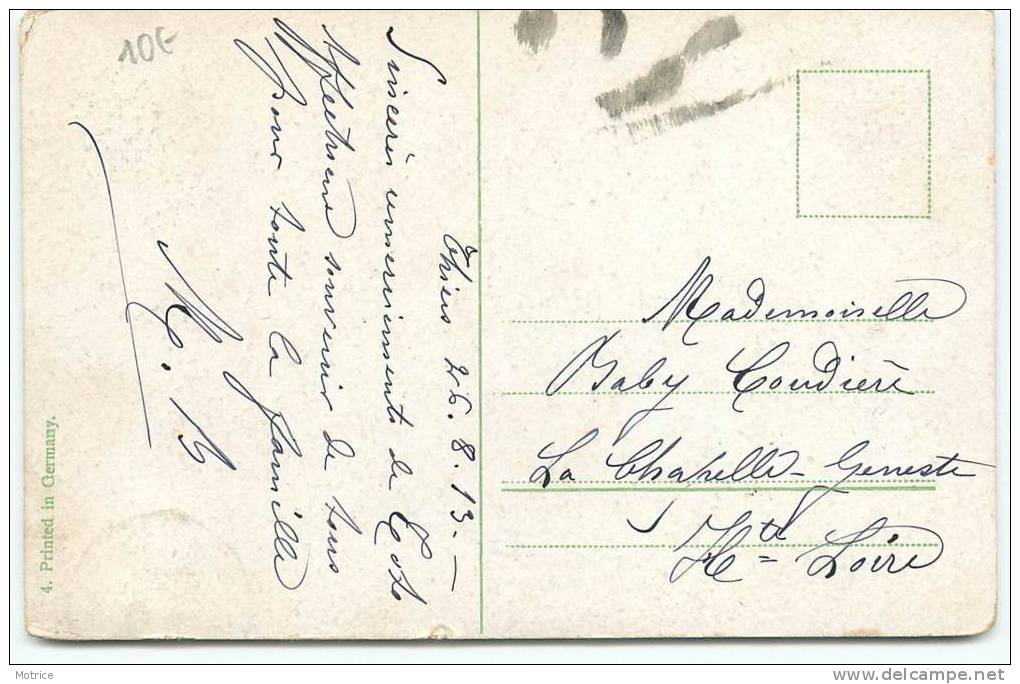 10€
Thiers 26.8.13. –
Sincères remerciements de
Affectueux souvenir de tous
pour toute la famille
M. B
Mademoiselle
Baby Coudière
La Chapelle-Geneste
Hte Loire
4. Printed in Germany.
Motrice
delcampe.net